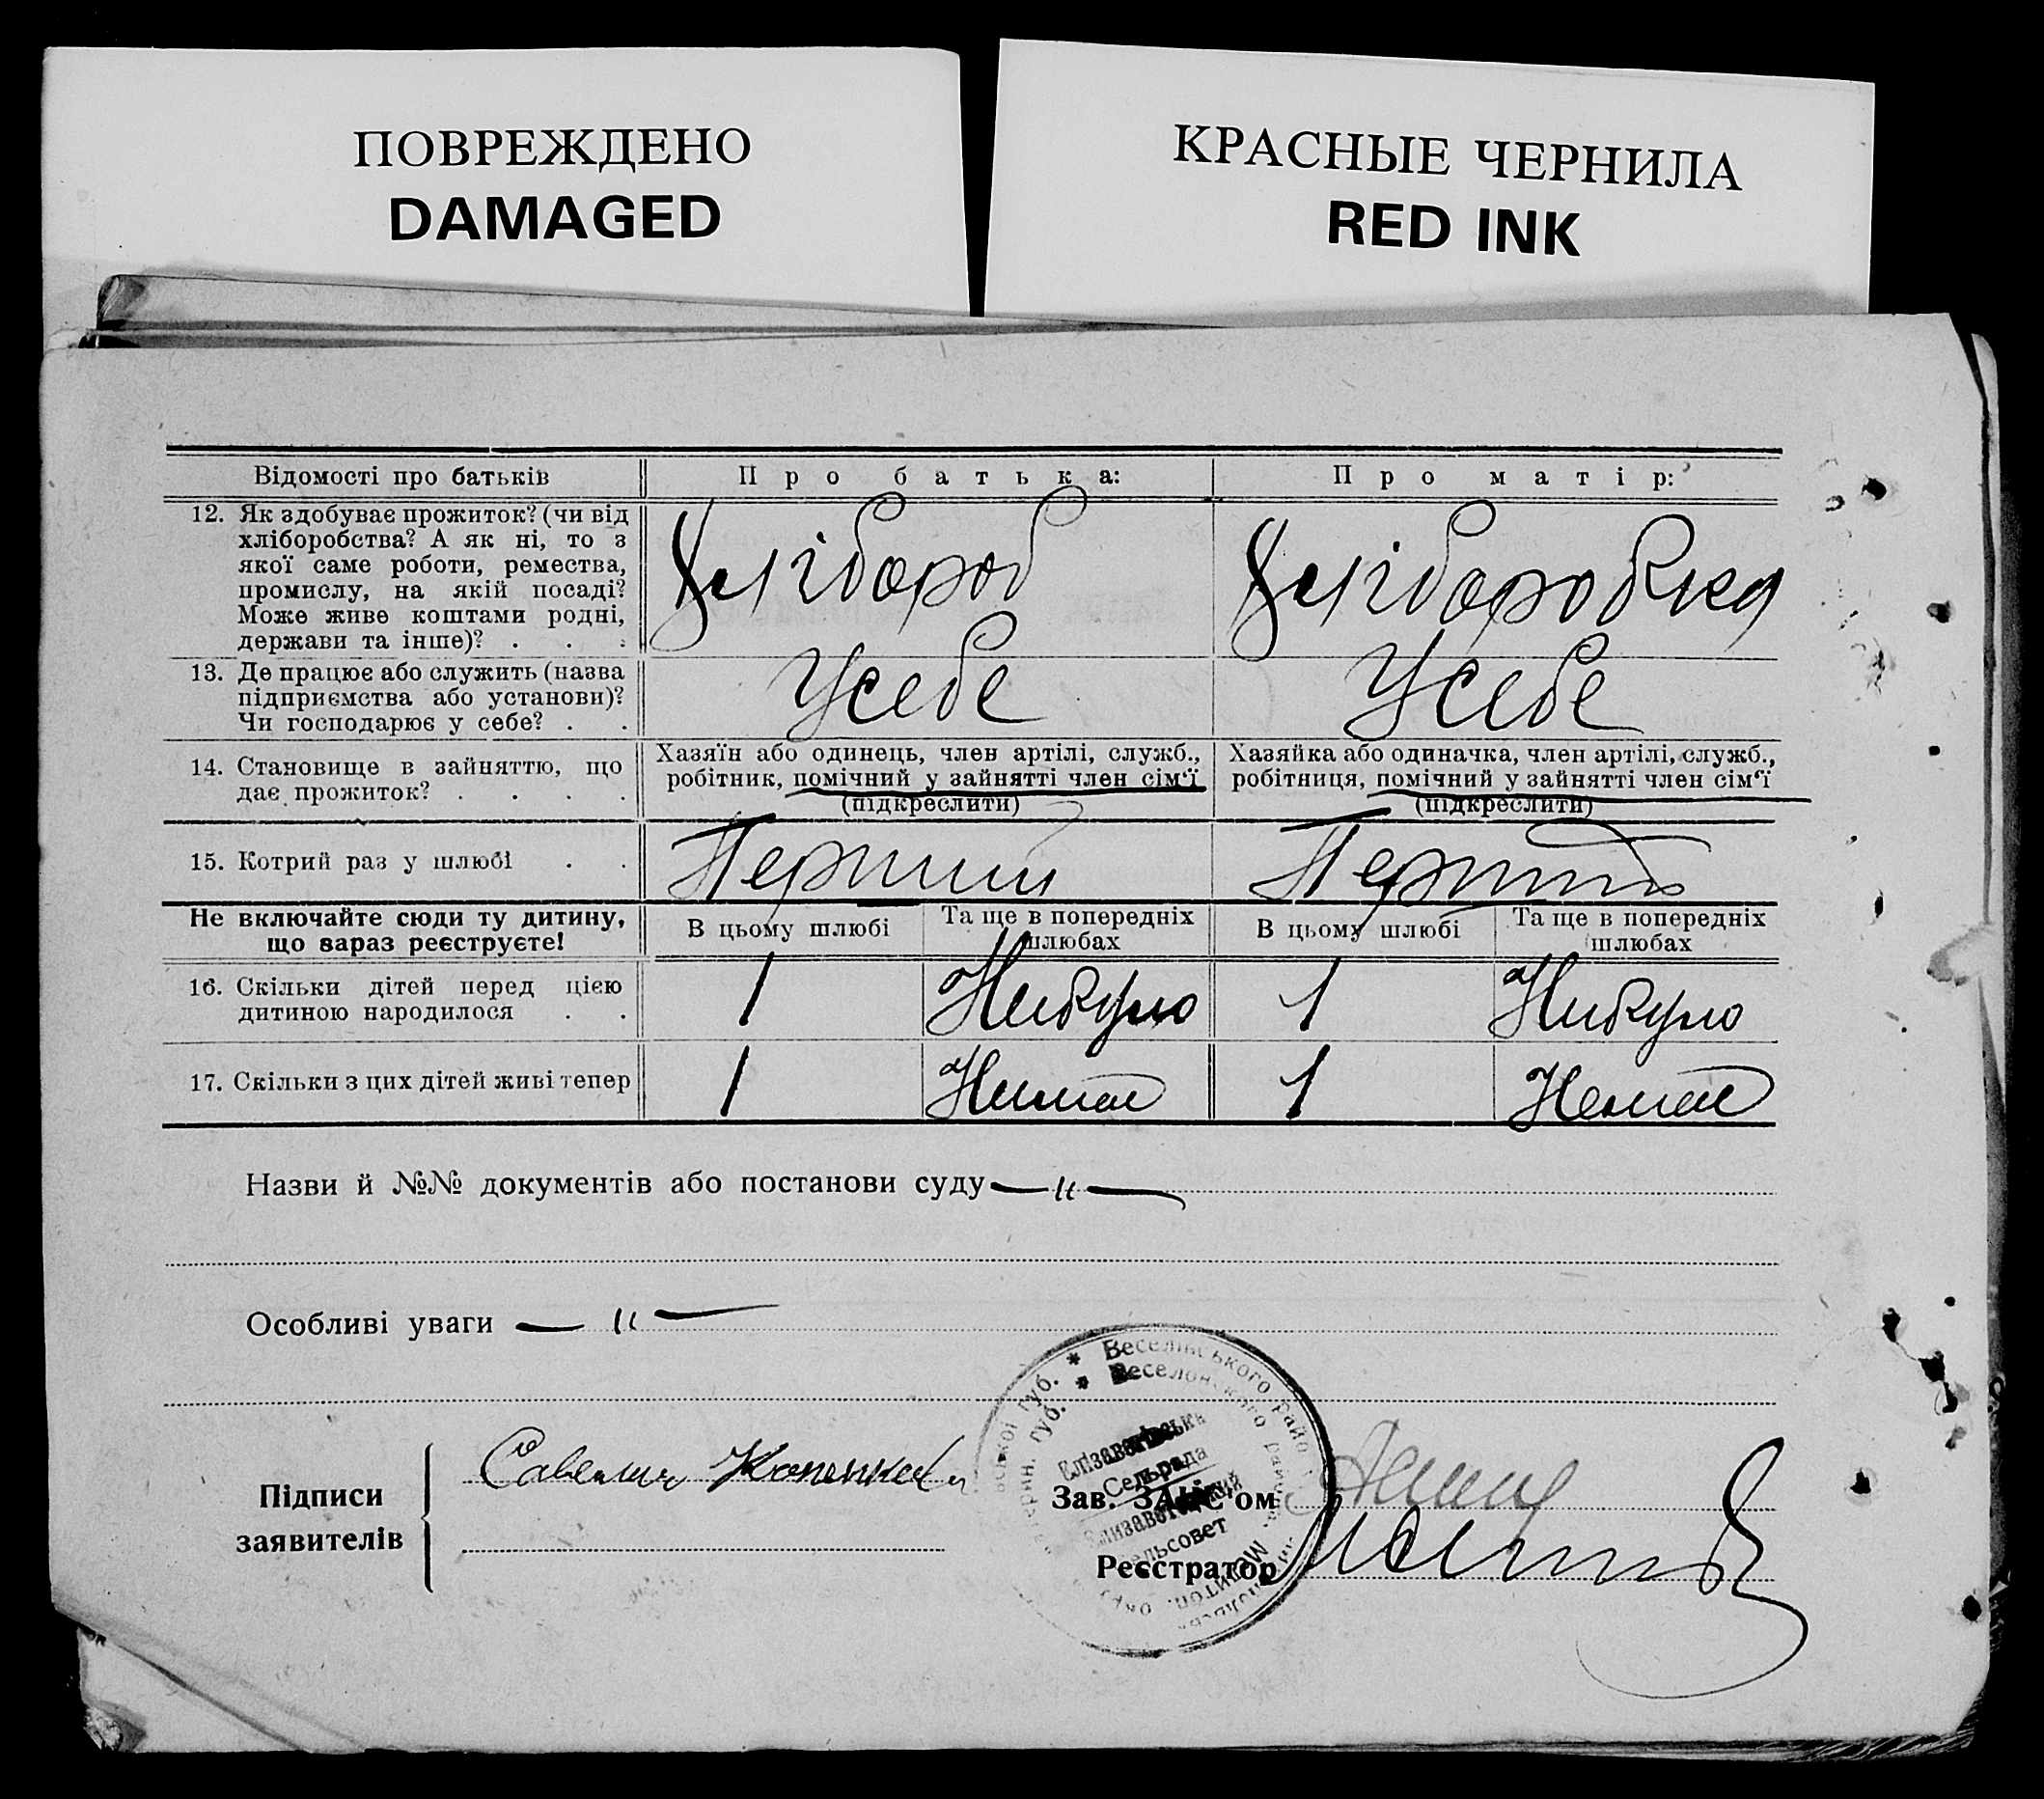 ПОВРЕЖДЕНО
DAMAGED
КРАСНЫЕ ЧЕРНИЛА
RED INK
Відомості про батьків
Про батька:
Про матір:
12. Як здобуває прожиток? (чи від
хліборобства? А як ні, то з
якої саме роботи, ремества,
промислу, на якій посаді?
Може живе коштами родні,
держави та інше)? . . .
Хлібороб
Хліборобка
13. Де працює або служить (назва
підприємства або установи)?
Чи господарює у себе? . .
Усебе
Усебе
14. Становище в зайняттю, що
дає прожиток? . . . .
Хазяїн або одинець, член артілі, служб.,
робітник, помічний у зайнятті член сім'ї
(підкреслити)
Хазяйка або одиначка, член артілі, служб.,
робітниця, помічний у зайнятті член сім'ї
(підкреслити)
15. Котрий раз у шлюбі . .
Перший
Перший
Не включайте сюди ту дитину,
що зараз реєструєте!
В цьому шлюбі
Та ще в попередніх
шлюбах
В цьому шлюбі
Та ще в попередніх
шлюбах
16. Скільки дітей перед цією
дитиною народилося . .
1
Небуло
1
Небуло
17. Скільки з цих дітей живі тепер
1
Нимае
1
Немае
Назви й №№ документів або постанови суду — " —
Особливі уваги — " —
Підписи
заявителів
Веселівського Райо
Веселовского района
Єлізаветівська
Сельрада
Елизаветовский
сельсовет
Мелитоп. окр.
Зав. ЗАГС'ом
Реєстратор